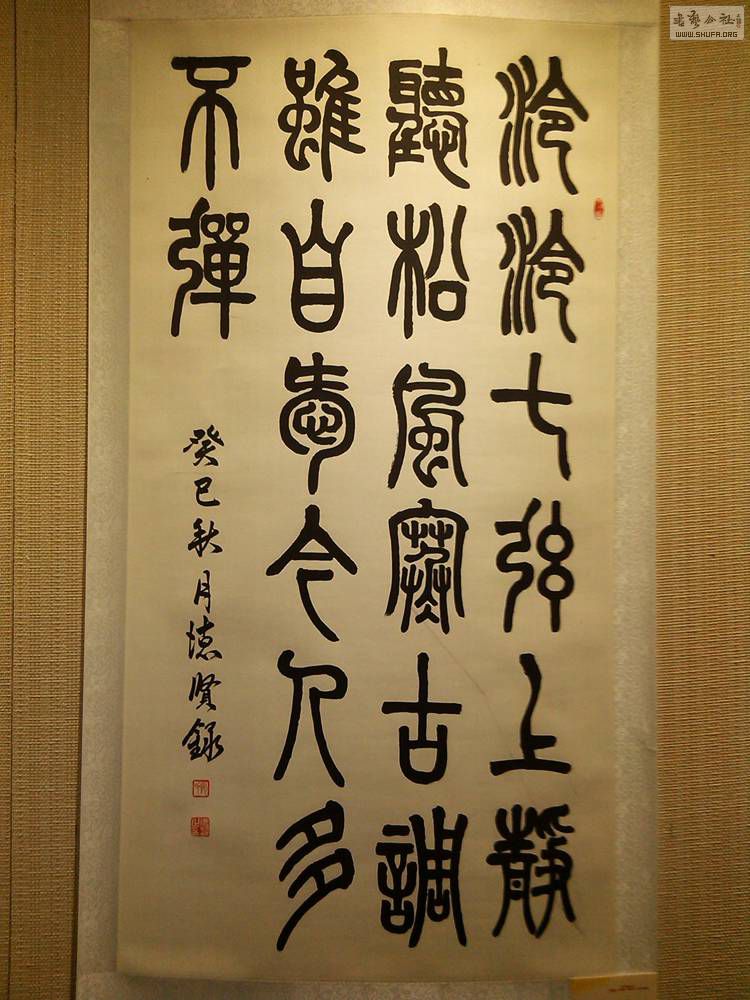 泠泠七弦上靜
聽松風寒古調
雖自愛今人多
不彈
癸巳秋月德賢錄
書藝公社
WWW.SHUFA.ORG